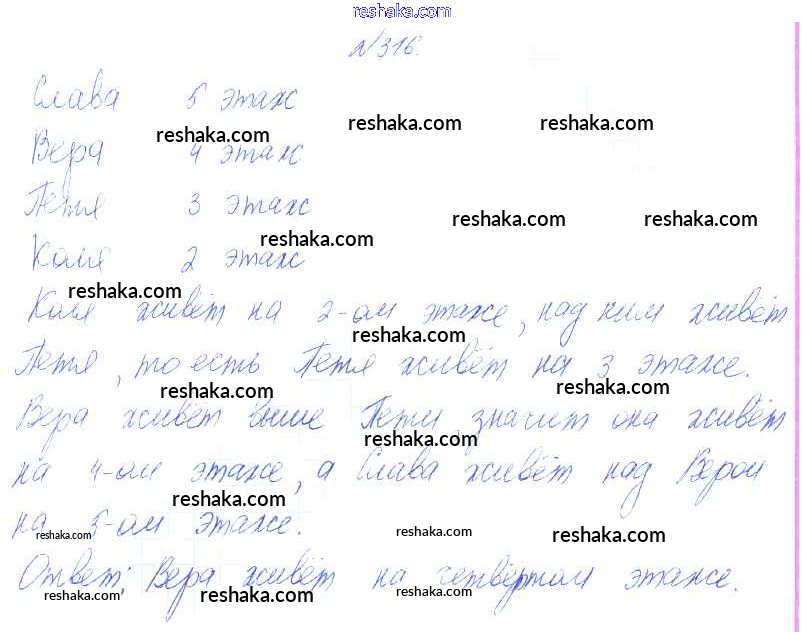 reshaka.com
№316.
Слава 5 этаж
reshaka.com reshaka.com reshaka.com
Вера 4 этаж
Петя 3 этаж
reshaka.com reshaka.com reshaka.com
Коля 2 этаж
reshaka.com
Коля живёт на 2-ом этаже, над ним живёт
reshaka.com
Петя, то есть Петя живёт на 3 этаже.
reshaka.com reshaka.com
Вера живёт выше Пети значит она живёт
reshaka.com
на 4-ом этаже, а Слава живёт над Верой
reshaka.com
на 5-ом этаже.
reshaka.com reshaka.com reshaka.com
Ответ: Вера живёт на четвёртом этаже.
reshaka.com reshaka.com reshaka.com